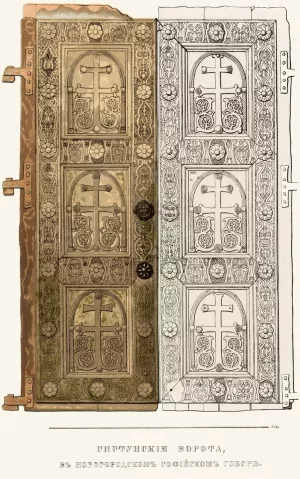 СИГТУНСКІЯ ВОРОТА,
ВЪ НОВОГОРОДСКОМЪ СОФІЙСКОМЪ СОБОРѢ.